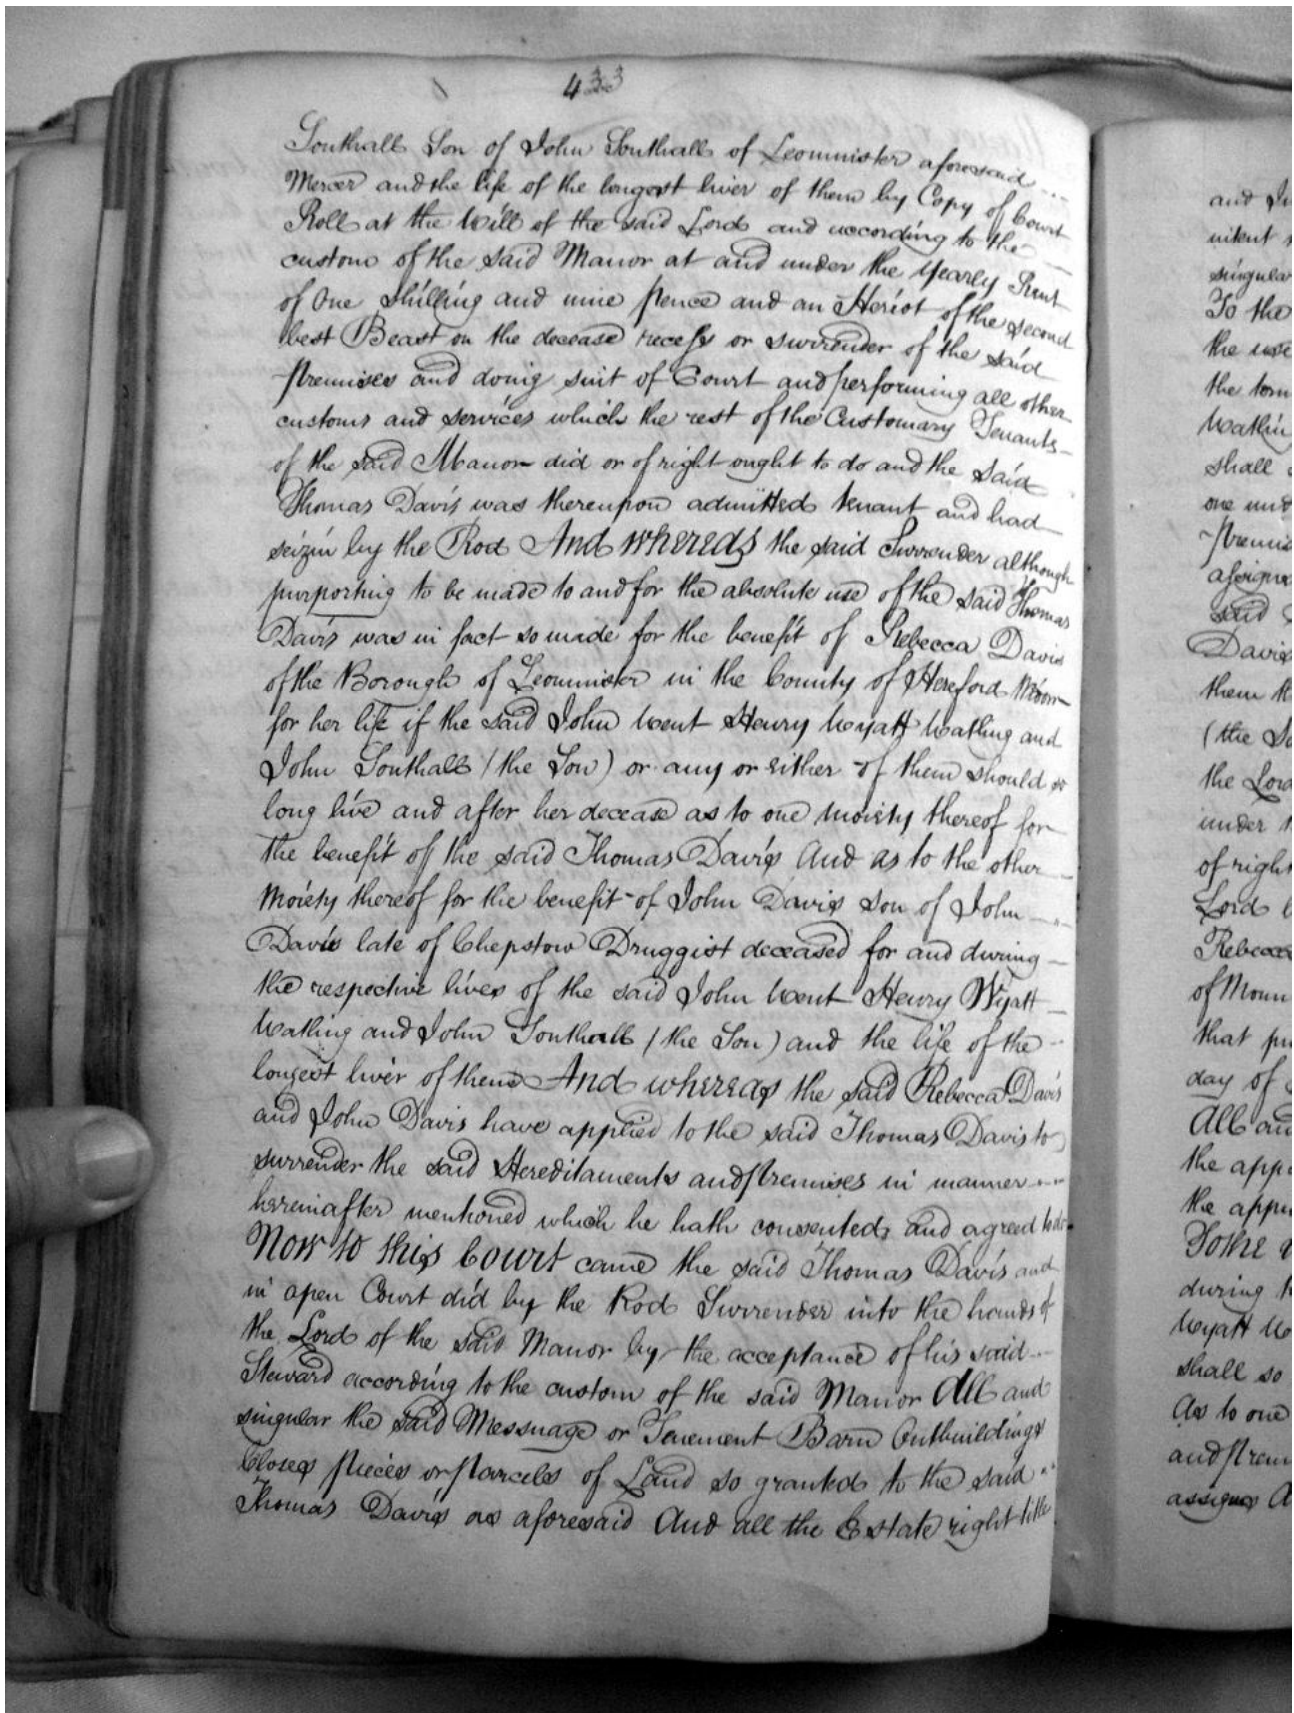 433
Southall Son of John Southall of Leominster aforesaid
Mercer and the life of the longest liver of them by Copy of Court
Roll at the Will of the said Lord and according to the
custom of the said Manor at and under the yearly Rent
of One shilling and nine pence and an Heriot of the second
best Beast on the decease recess or surrender of the said
premises and doing suit of Court and performing all other
customs and services which the rest of the Customary Tenants
of the said Manor did or of right ought to do and the said
Thomas Davis was thereupon admitted tenant and had
seizin by the Rod And whereas the said Surrender although
purporting to be made to and for the absolute use of the said Thomas
Davis was in fact so made for the benefit of Rebecca Davis
of the Borough of Leominster in the County of Hereford
for her life if the said John Went Henry Wyatt Watling and
John Southall (the Son) or any or either of them should so
long live and after her decease as to one moiety thereof for
the benefit of the said Thomas Davis And as to the other
Moiety thereof for the benefit of John Davis son of John
Davis late of Chepstow Druggist deceased for and during
the respective lives of the said John Went Henry Wyatt
Watling and John Southall (the Son) and the life of the
longest liver of them And whereas the said Rebecca Davis
and John Davis have applied to the said Thomas Davis to
surrender the said Hereditaments and premises in manner
hereinafter mentioned which he hath consented and agreed to do
Now to this Court came the said Thomas Davis and
in open Court did by the Rod Surrender into the hands of
the Lord of the said Manor by the acceptance of his said
Steward according to the custom of the said Manor All and
singular the said Messuage or Tenement Barn Outbuildings
Closes pieces or parcels of Land so granted to the said
Thomas Davis as aforesaid And all the Estate right title
and
singular
To the
the use
the
shall
one
said
Davis
them
(the
the Lord
under
of right
Lord
Rebecca
of
that
day of
All and
the
the
To the
during
Wyatt
shall so
As to one
and
assigns